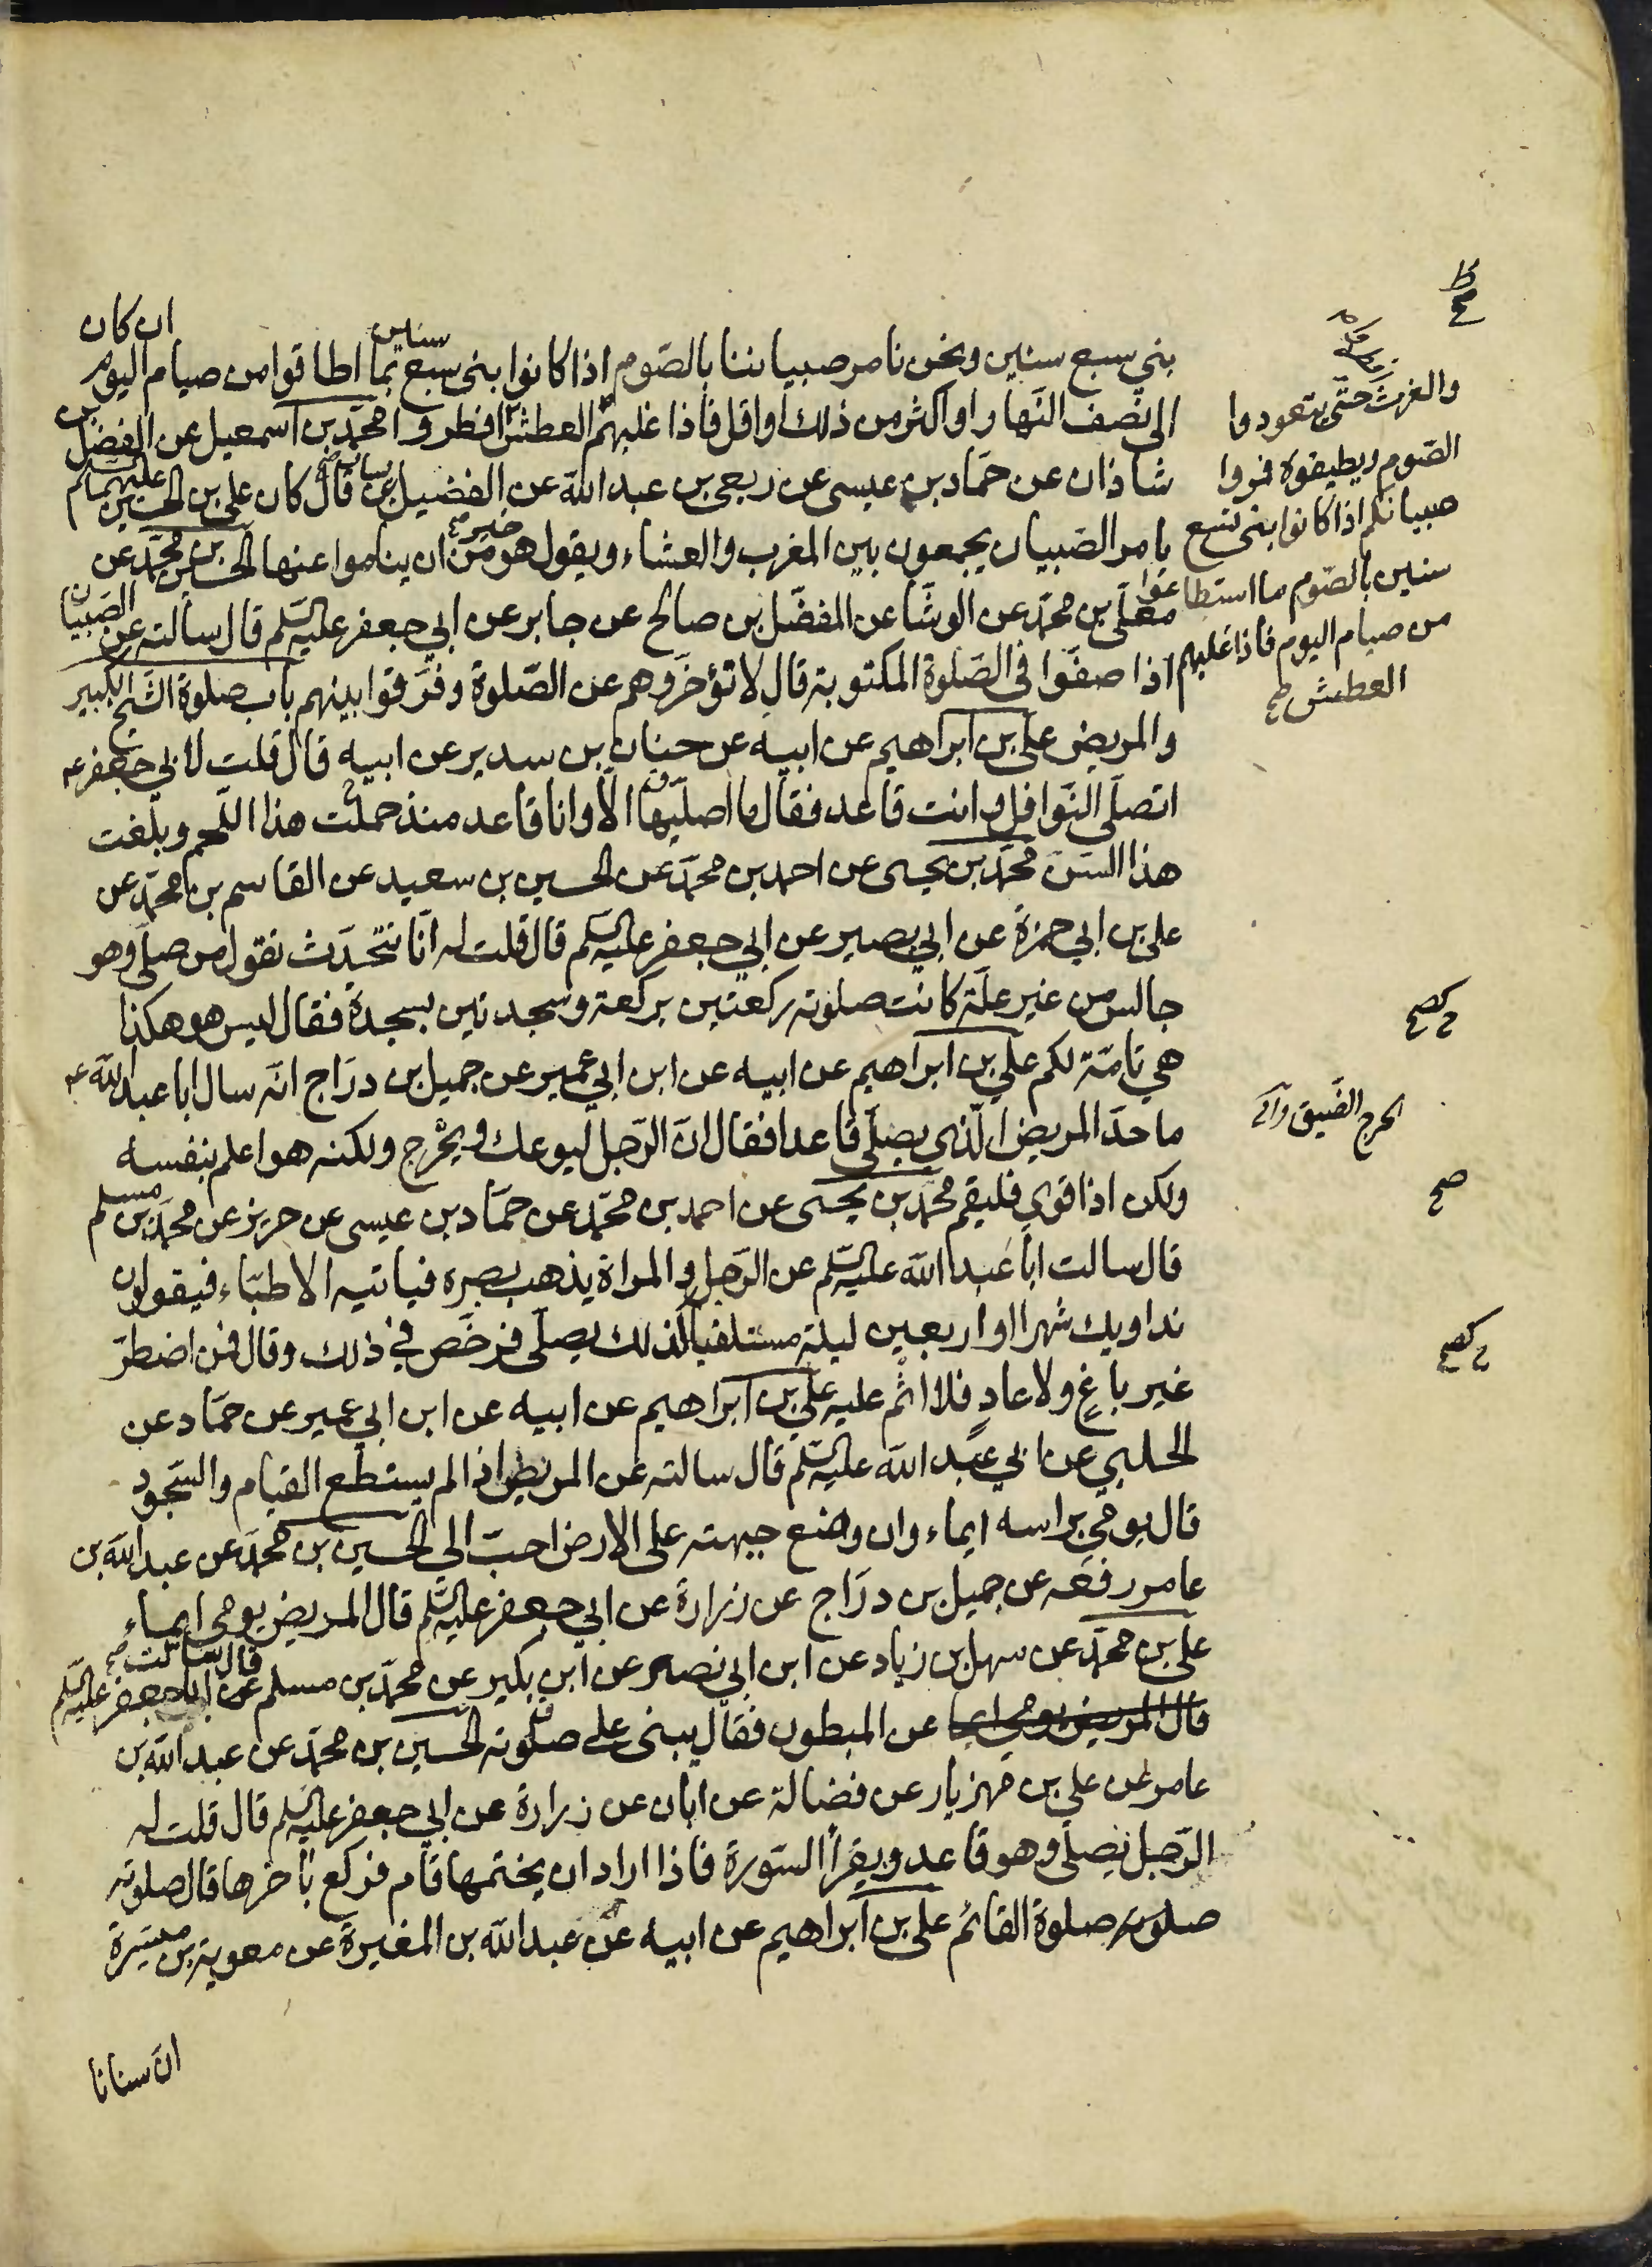 ان كان
بني سبع سنين ونحن نامر صبياننا بالصّوم اذا كانوا بنى سبع سنين بما اطاقوا من صيام اليوم
الى نصف النّهار او اكثر من ذلك او اقل فاذا غلبهم العطش افطروا محمّد بن اسمعيل عن الفضل بن
شاذان عن حمّاد بن عيسى عن ربعى بن عبد الله عن الفضيل بن يسار قال كان على بن الحسين عليهما السلم
يامر الصّبيان يجمعون بين المغرب والعشاء ويقول هو خير من ان يناموا عنها الحسين بن محمّد عن
معلّى بن محمّد عن الوشّا عن المفضّل بن صالح عن جابر عن ابي جعفر عليه السّلم قال سالته عن الصّبيان
اذا صفّوا فى الصّلوة المكتوبة قال لا تؤخّروهم عن الصّلوة وفرّقوا بينهم باب صلوة الشّيخ الكبير
والمريض على بن ابراهيم عن ابيه عن حنان بن سدير عن ابيه قال قلت لابي جعفر عه
اتصلّى النّوافل وانت قاعد فقال ما اصلّيها الّا وانا قاعد منذ حملت هذا اللّحم وبلغت
هذا السّنّ محمّد بن يحيى عن احمد بن محمّد عن الحسين بن سعيد عن القاسم بن محمّد عن
على بن ابي حمزة عن ابي بصير عن ابي جعفر عليه السّلم قال قلت له انّا نتحدّث نقول من صلّى وهو
جالس من غير علّة كانت صلوته ركعتين بركعة وسجدتين بسجدة فقال ليس هو هكذا
هي تامّة لكم علي بن ابراهيم عن ابيه عن ابن ابي عمير عن جميل بن درّاج انّه سال ابا عبد الله عه
ما حدّ المريض الّذى يصلّى قاعدا فقال انّ الرّجل ليوعك ويحرج ولكنه هو اعلم بنفسه
ولكن اذا قوي فليقم محمّد بن يحيى عن احمد بن محمّد عن حمّاد بن عيسى عن حريز عن محمّد بن مسلم
قال سالت ابا عبد الله عليه السّلم عن الرّجل والمراة يذهب بصره فياتيه الاطبّاء فيقولون
نداويك شهرا او اربعين ليلة مستلقيا كذلك يصلّى فرخّص في ذلك وقال فمن اضطرّ
غير باغٍ ولا عادٍ فلا اثم عليه علي بن ابراهيم عن ابيه عن ابن ابي عمير عن حمّاد عن
الحلبي عن ابي عبد الله عليه السّلم قال سالته عن المريض اذا لم يستطع القيام والسّجود
قال يومي براسه ايماء وان وضع جبهته على الارض احبّ الي الحسين بن محمّد عن عبد الله بن
عامر رفعه عن جميل بن درّاج عن زرارة عن ابي جعفر عليه السّلم قال المريض يومى ايماء
على بن محمّد عن سهل بن زياد عن ابن ابي نصر عن ابن بكير عن محمّد بن مسلم قال سالت ابا جعفر عليه السّلم
قال المريض يومي ايما عن المبطون فقال يبنى على صلوته الحسين بن محمّد عن عبد الله بن
عامر عن علي بن مهزيار عن فضالة عن ابان عن زرارة عن ابي جعفر عليه السّلم قال قلت له
الرّجل يصلّى وهو قاعد ويقرأ السّورة فاذا اراد ان يختمها قام فركع بآخرها قال صلوته
صلوته صلوة القائم على بن ابراهيم عن ابيه عن عبد الله بن المغيرة عن معوية بن ميسرة
انّ سنانا
والغرث حتّى يتعودوا
الصّوم ويطيقوه فمروا
صبيانكم اذا كانوا بنى تسع
سنين بالصّوم ما استطاعوا
من صيام اليوم فاذا غلبهم
العطش صح
الحرج الضّيق
صح